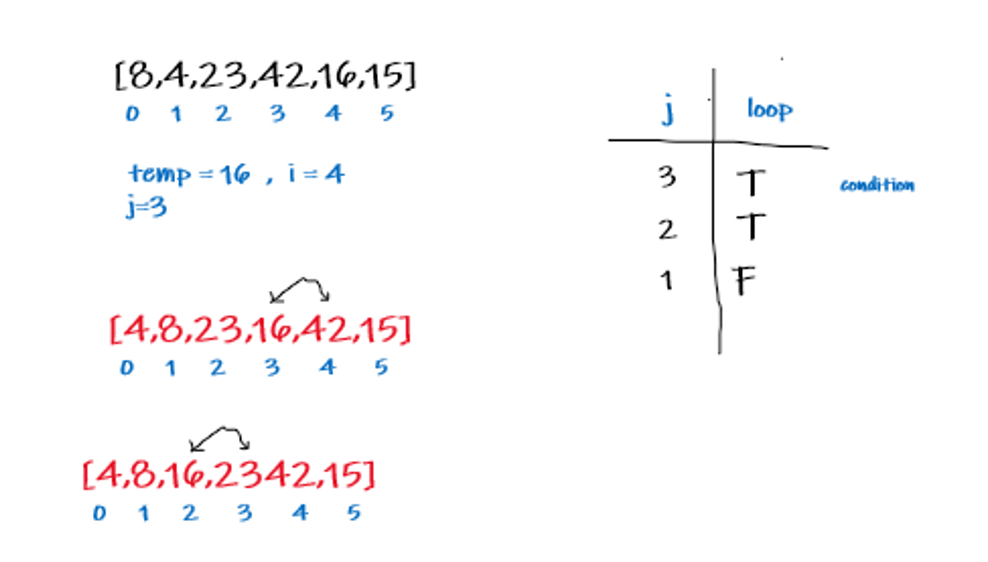 [8,4,23,42,16,15]
0 1 2 3 4 5
temp = 16 , i = 4
j=3
[4,8,23,16,42,15]
0 1 2 3 4 5
[4,8,16,2342,15]
0 1 2 3 4 5
j loop
3 T condition
2 T
1 F